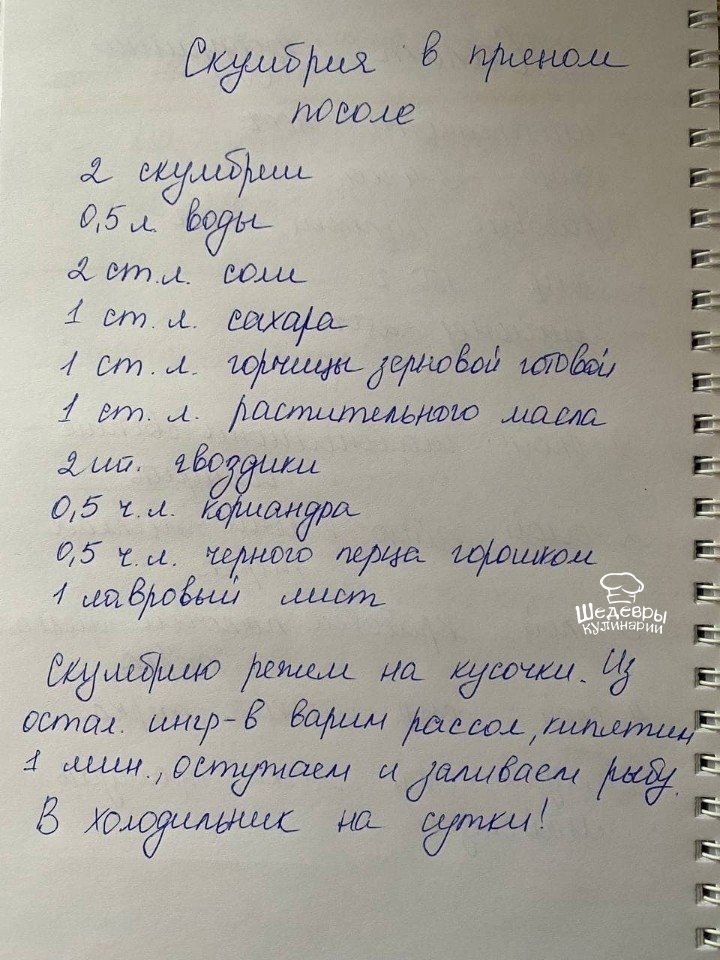 Скумбрия в пряном
посоле
2 скумбрии
0,5 л. воды
2 ст. л. соли
1 ст. л. сахара
1 ст. л. горчицы зерновой готовой
1 ст. л. растительного масла
2 шт. гвоздики
0,5 ч. л. кориандра
0,5 ч. л. черного перца горошком
1 лавровый лист
Шедевры
кулинарии
Скумбрию режем на кусочки. Из
остал. ингр-в варим рассол, кипятим
1 мин., остужаем и заливаем рыбу.
В холодильник на сутки!